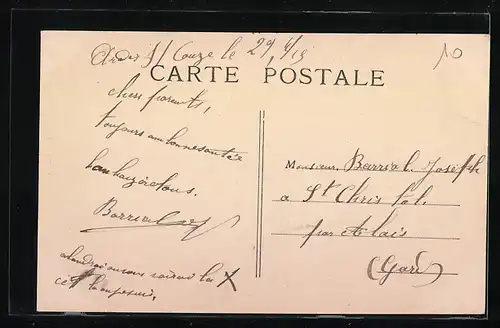 Ardes s/ Couze le 29/4/19
10
CARTE POSTALE
chers parents,
toujours en bonne santée
bon baizé a tous.
Barrial
Monsieur Barrial Joseph
a St Chris tol
par Alais
(Gard)